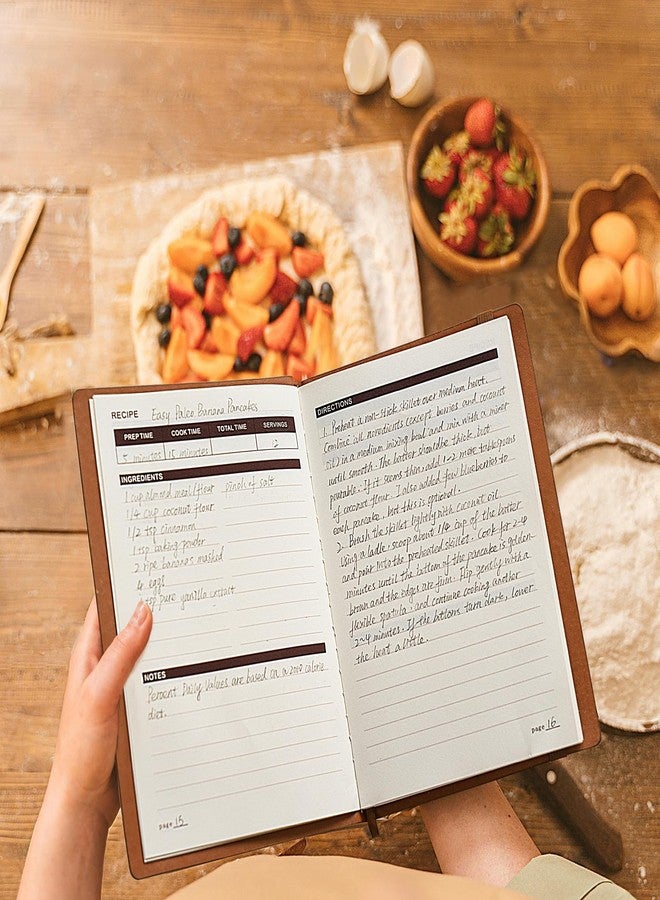 RECIPE Easy Paleo Banana Pancakes
PREP TIME COOK TIME TOTAL TIME SERVINGS
5 minutes 15 minutes 12
INGREDIENTS
1 cup almond meal/flour pinch of salt
1/4 cup coconut flour
1/2 tsp cinnamon
1 tsp baking powder
2 ripe bananas mashed
4 eggs
tsp pure vanilla extract
NOTES
Percent Daily Values are based on a 2000 calorie
diet.
page 15
DIRECTIONS
1. Preheat a non-stick skillet over medium heat.
Combine all ingredients (except berries and coconut
oil) in a medium mixing bowl and mix with a mixer
until smooth. The batter should be thick, but
pourable. If it seems thin, add 1-2 more tablespoons
of coconut flour. I also added few blueberries to
each pancake, but this is optional.
2. Brush the skillet lightly with coconut oil.
Using a ladle, scoop about 1/4 cup of the batter
and pour into the preheated skillet. Cook for 2-4
minutes until the bottom of the pancake is golden
brown and the edges are firm. Flip gently with a
flexible spatula, and continue cooking another
2~4 minutes. If the bottoms turn dark, lower
the heat a little.
page 16